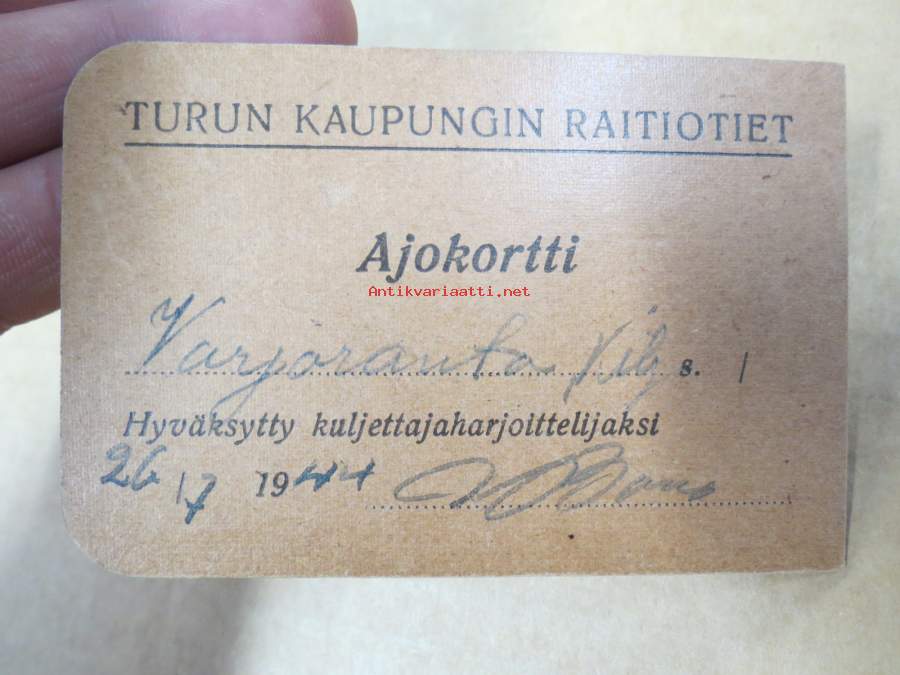 TURUN KAUPUNGIN RAITIOTIET
Ajokortti
Antikvariaatti.net
Varjoranta Vilj s. /
Hyväksytty kuljettajaharjoittelijaksi
26/7 1944